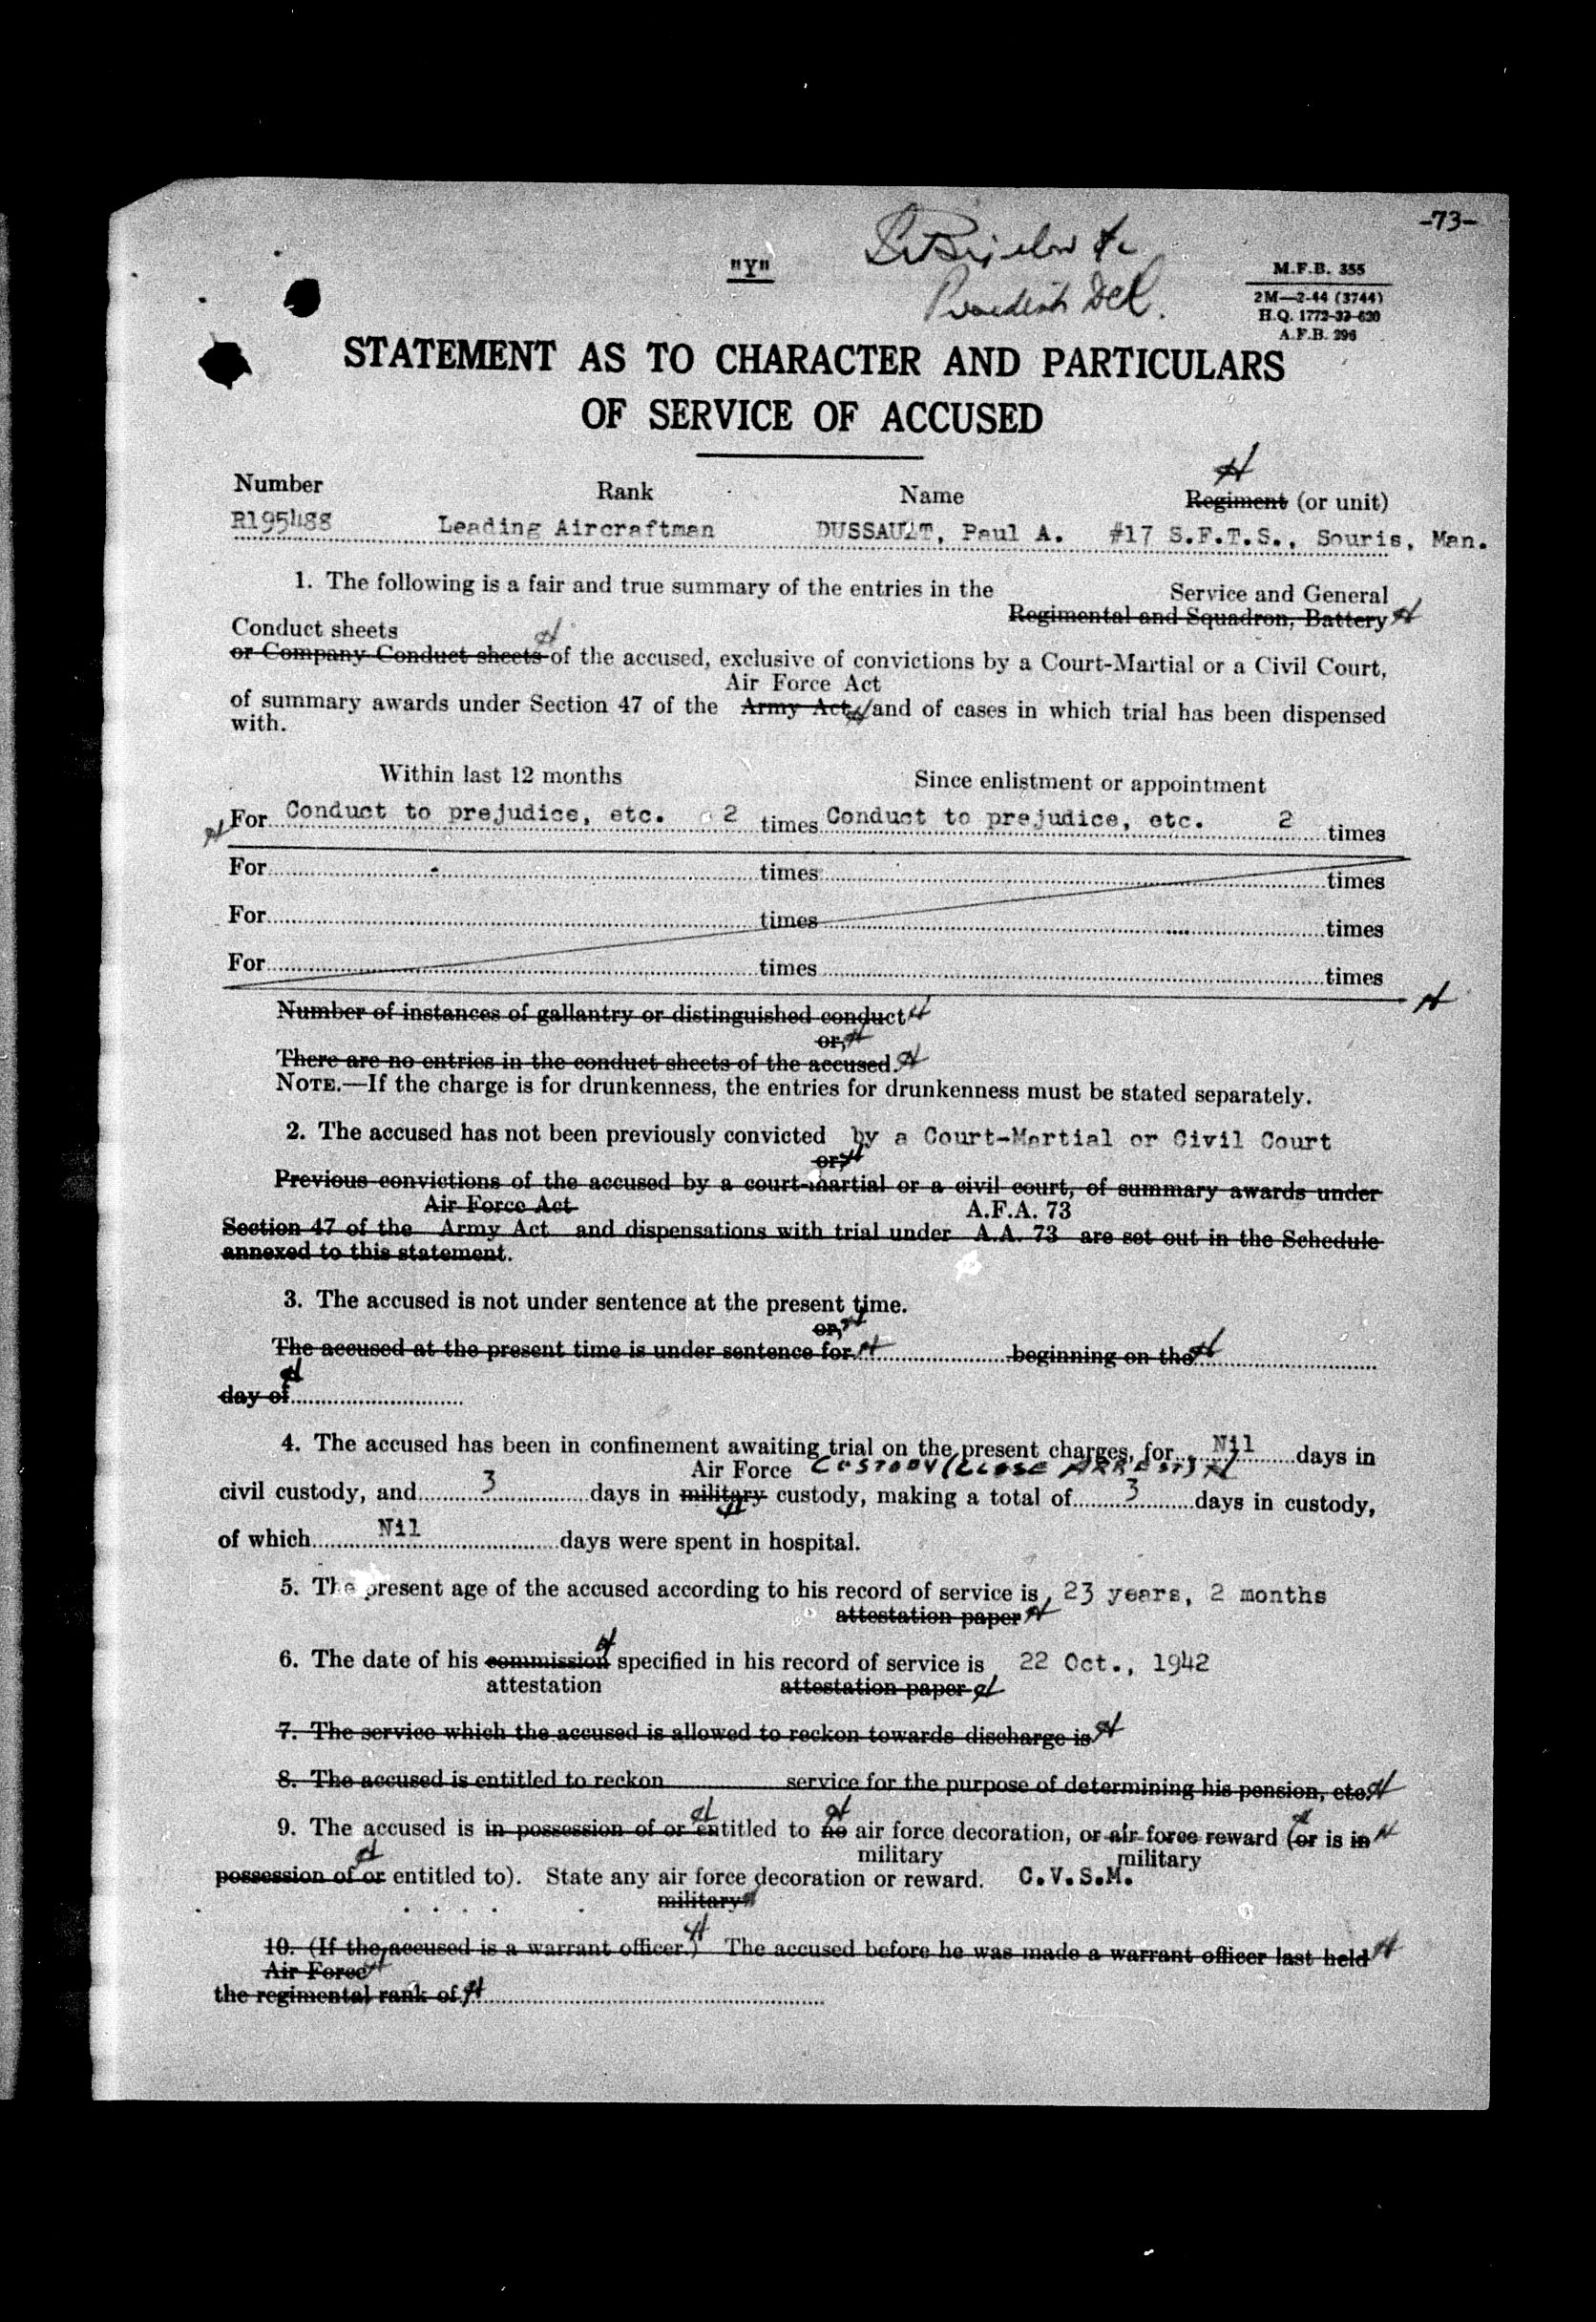 -73-
"Y"
M.F.B. 355
2M—2-44 (3744)
H.Q. 1772-33-620
A.F.B. 296
STATEMENT AS TO CHARACTER AND PARTICULARS
OF SERVICE OF ACCUSED
Number Rank Name Regiment (or unit)
R195488 Leading Aircraftman DUSSAULT, Paul A. #17 S.F.T.S., Souris, Man.
1. The following is a fair and true summary of the entries in the Service and General
Regimental and Squadron, Battery
Conduct sheets
or Company Conduct sheets of the accused, exclusive of convictions by a Court-Martial or a Civil Court,
Air Force Act
of summary awards under Section 47 of the Army Act, and of cases in which trial has been dispensed
with.
Within last 12 months Since enlistment or appointment
For Conduct to prejudice, etc. 2 times Conduct to prejudice, etc. 2 times
For times times
For times times
For times times
Number of instances of gallantry or distinguished conduct
or,
There are no entries in the conduct sheets of the accused.
NOTE.—If the charge is for drunkenness, the entries for drunkenness must be stated separately.
2. The accused has not been previously convicted by a Court-Martial or Civil Court
or,
Previous convictions of the accused by a court-martial or a civil court, of summary awards under
Air Force Act A.F.A. 73
Section 47 of the Army Act and dispensations with trial under A.A. 73 are set out in the Schedule
annexed to this statement.
3. The accused is not under sentence at the present time.
or,
The accused at the present time is under sentence for beginning on the
day of
4. The accused has been in confinement awaiting trial on the present charges, for Nil days in
Air Force CUSTODY (CLOSE ARREST)
civil custody, and 3 days in military custody, making a total of 3 days in custody,
of which Nil days were spent in hospital.
5. The present age of the accused according to his record of service is, 23 years, 2 months
attestation paper
6. The date of his commission specified in his record of service is 22 Oct., 1942
attestation attestation paper
7. The service which the accused is allowed to reckon towards discharge is
8. The accused is entitled to reckon service for the purpose of determining his pension, etc.
9. The accused is in possession of or entitled to no air force decoration, or air force reward (or is in
military military
possession of or entitled to). State any air force decoration or reward. C.V.S.M.
military
10. (If the accused is a warrant officer.) The accused before he was made a warrant officer last held
Air Force
the regimental rank of